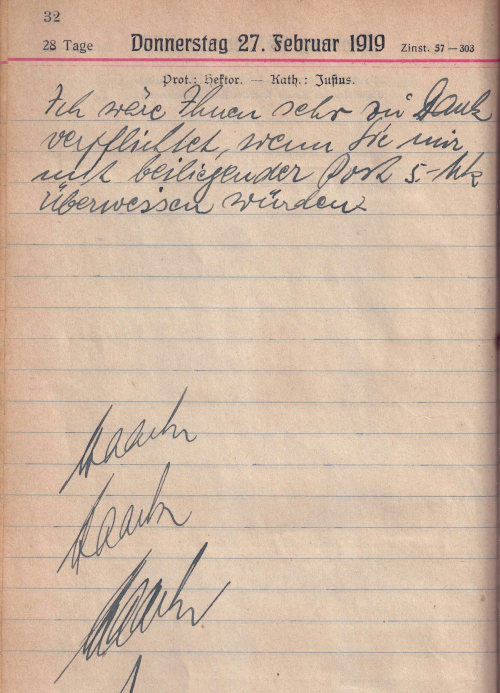 32
28 Tage Donnerstag 27. Februar 1919 Zinst. 57–303
Prot.: Hektor. — Kath.: Justus.
Ich wäre Ihnen sehr zu Dank
verpflichtet, wenn Sie mir
mit beiliegender Post 5.- Mk
Überweissen würden